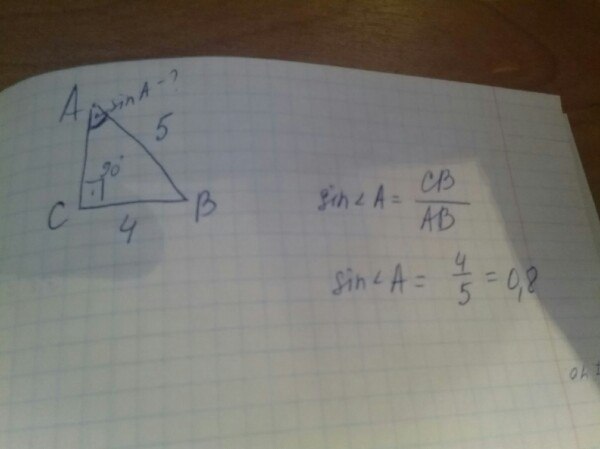 A
sinA-?
5
90°
C
4
B
sin∠A = CB/AB
sin∠A = 4/5 = 0,8